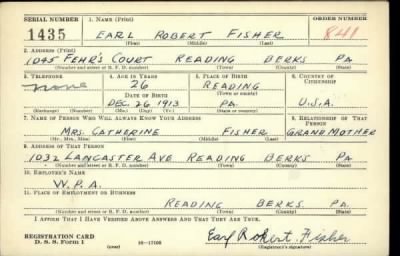 SERIAL NUMBER 1. NAME (Print) ORDER NUMBER
1435 EARL ROBERT FISHER 841
(First) (Middle) (Last)
2. ADDRESS (Print)
1045 FEHR'S COURT READING BERKS PA
(Number and street or R. F. D. number) (Town) (County) (State)
3. TELEPHONE 4. AGE IN YEARS 5. PLACE OF BIRTH 6. COUNTRY OF CITIZENSHIP
none 26 READING
DATE OF BIRTH (Town or county)
DEC 26 1913 PA. U.S.A.
(Exchange) (Number) (Mo.) (Day) (Yr.) (State or country)
7. NAME OF PERSON WHO WILL ALWAYS KNOW YOUR ADDRESS 8. RELATIONSHIP OF THAT PERSON
MRS. CATHERINE FISHER GRAND MOTHER
(Mr., Mrs., Miss) (First) (Middle) (Last)
9. ADDRESS OF THAT PERSON
1032 LANCASTER AVE READING BERKS PA
(Number and street or R. F. D. number) (Town) (County) (State)
10. EMPLOYER'S NAME
W.P.A.
11. PLACE OF EMPLOYMENT OR BUSINESS
READING BERKS PA
(Number and street or R. F. D. number) (Town) (County) (State)
I AFFIRM THAT I HAVE VERIFIED ABOVE ANSWERS AND THAT THEY ARE TRUE.
REGISTRATION CARD Earl Robert Fisher
D. S. S. FORM 1 (over) 16-17105 (Registrant's signature)